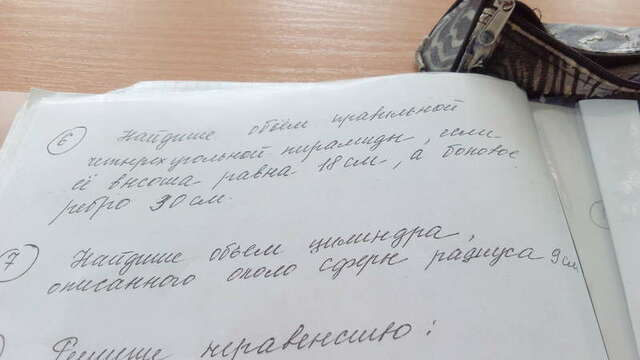 6 Найдите объём правильной
четырёхугольной пирамиды, если
её высота равна 18 см, а боковое
ребро 30 см.
7 Найдите объем цилиндра,
описанного около сферы радиуса 9 см
Решите неравенство: